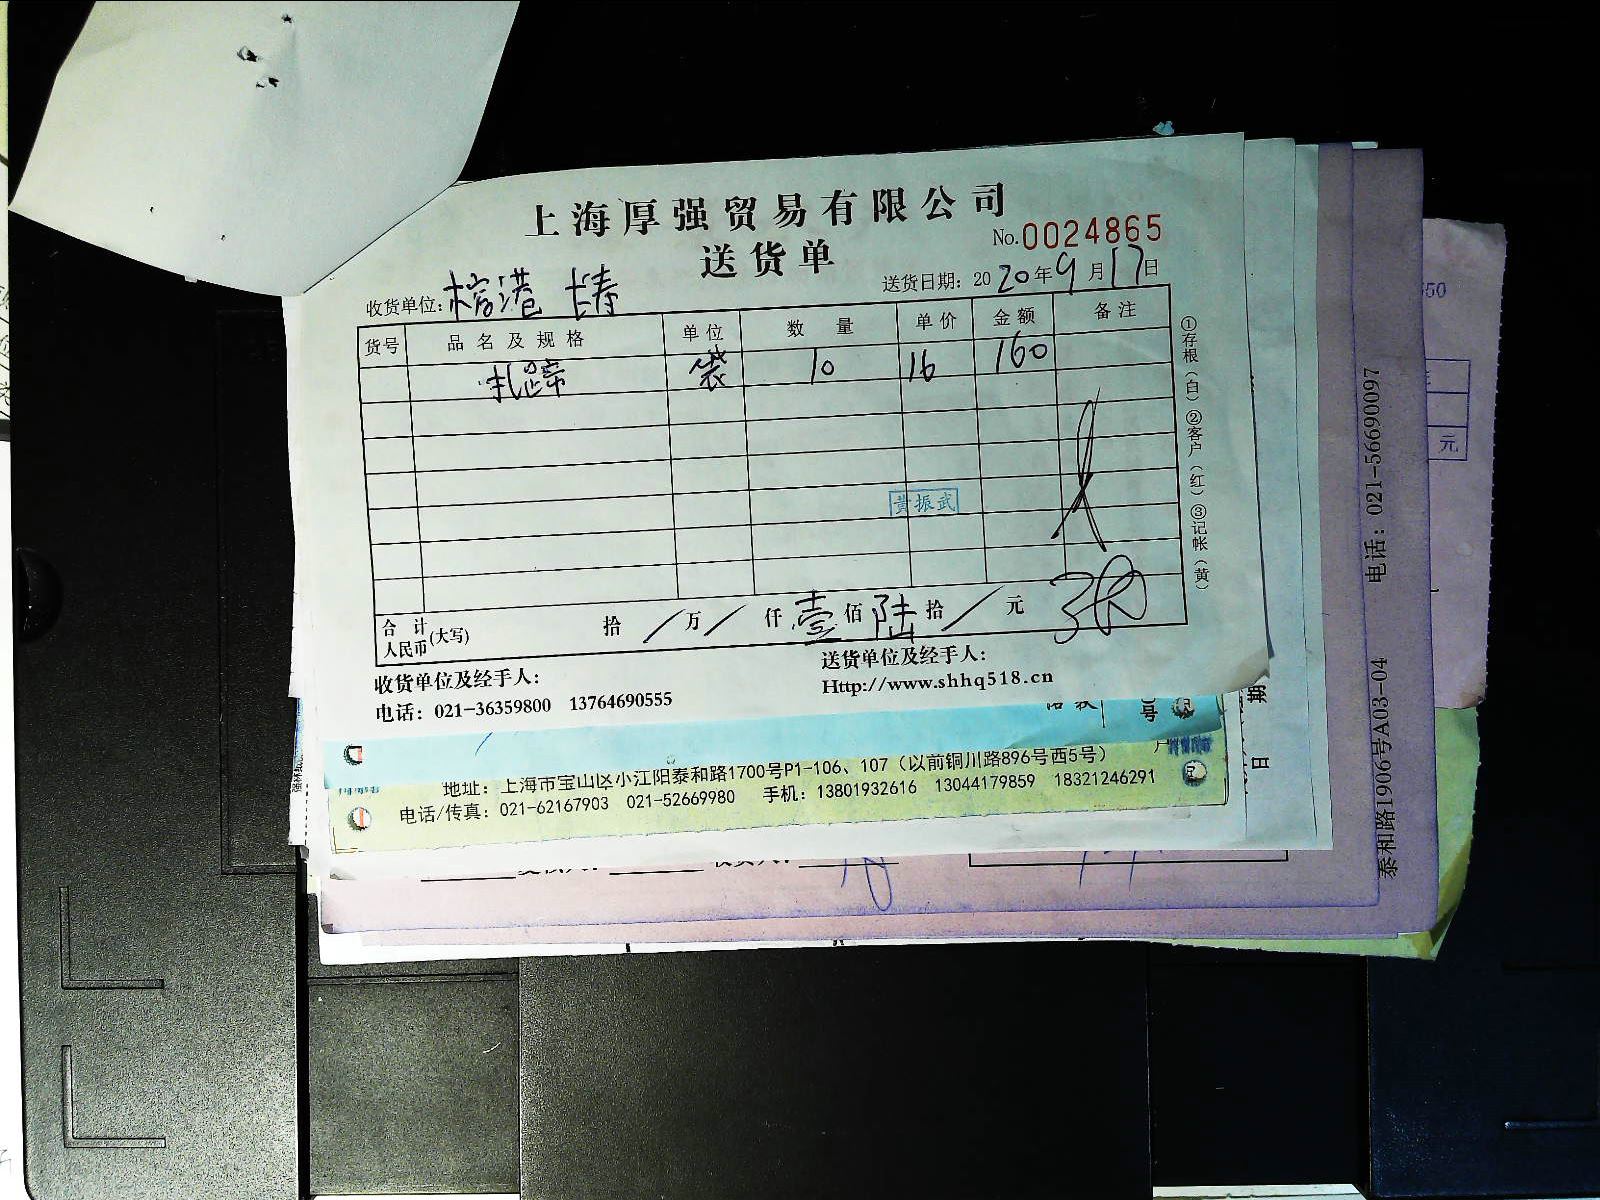 上海厚强贸易有限公司
送货单
No.0024865
收货单位: 长寿
送货日期: 2020年9月17日
货号 品名及规格 单位 数量 单价 金额 备注
扎蹄 袋 10 16 160
黄振武
合计人民币(大写) 拾/万/仟壹佰陆拾/元
收货单位及经手人:
送货单位及经手人:
电话: 021-36359800 13764690555
Http://www.shhq518.cn
①存根(白)②客户(红)③记帐(黄)
地址: 上海市宝山区小江阳泰和路1700号P1-106、107(以前铜川路896号西5号)
电话/传真: 021-62167903 021-52669980 手机: 13801932616 13044179859 18321246291
泰和路1906号A03-04 电话: 021-56690097
元
期
日